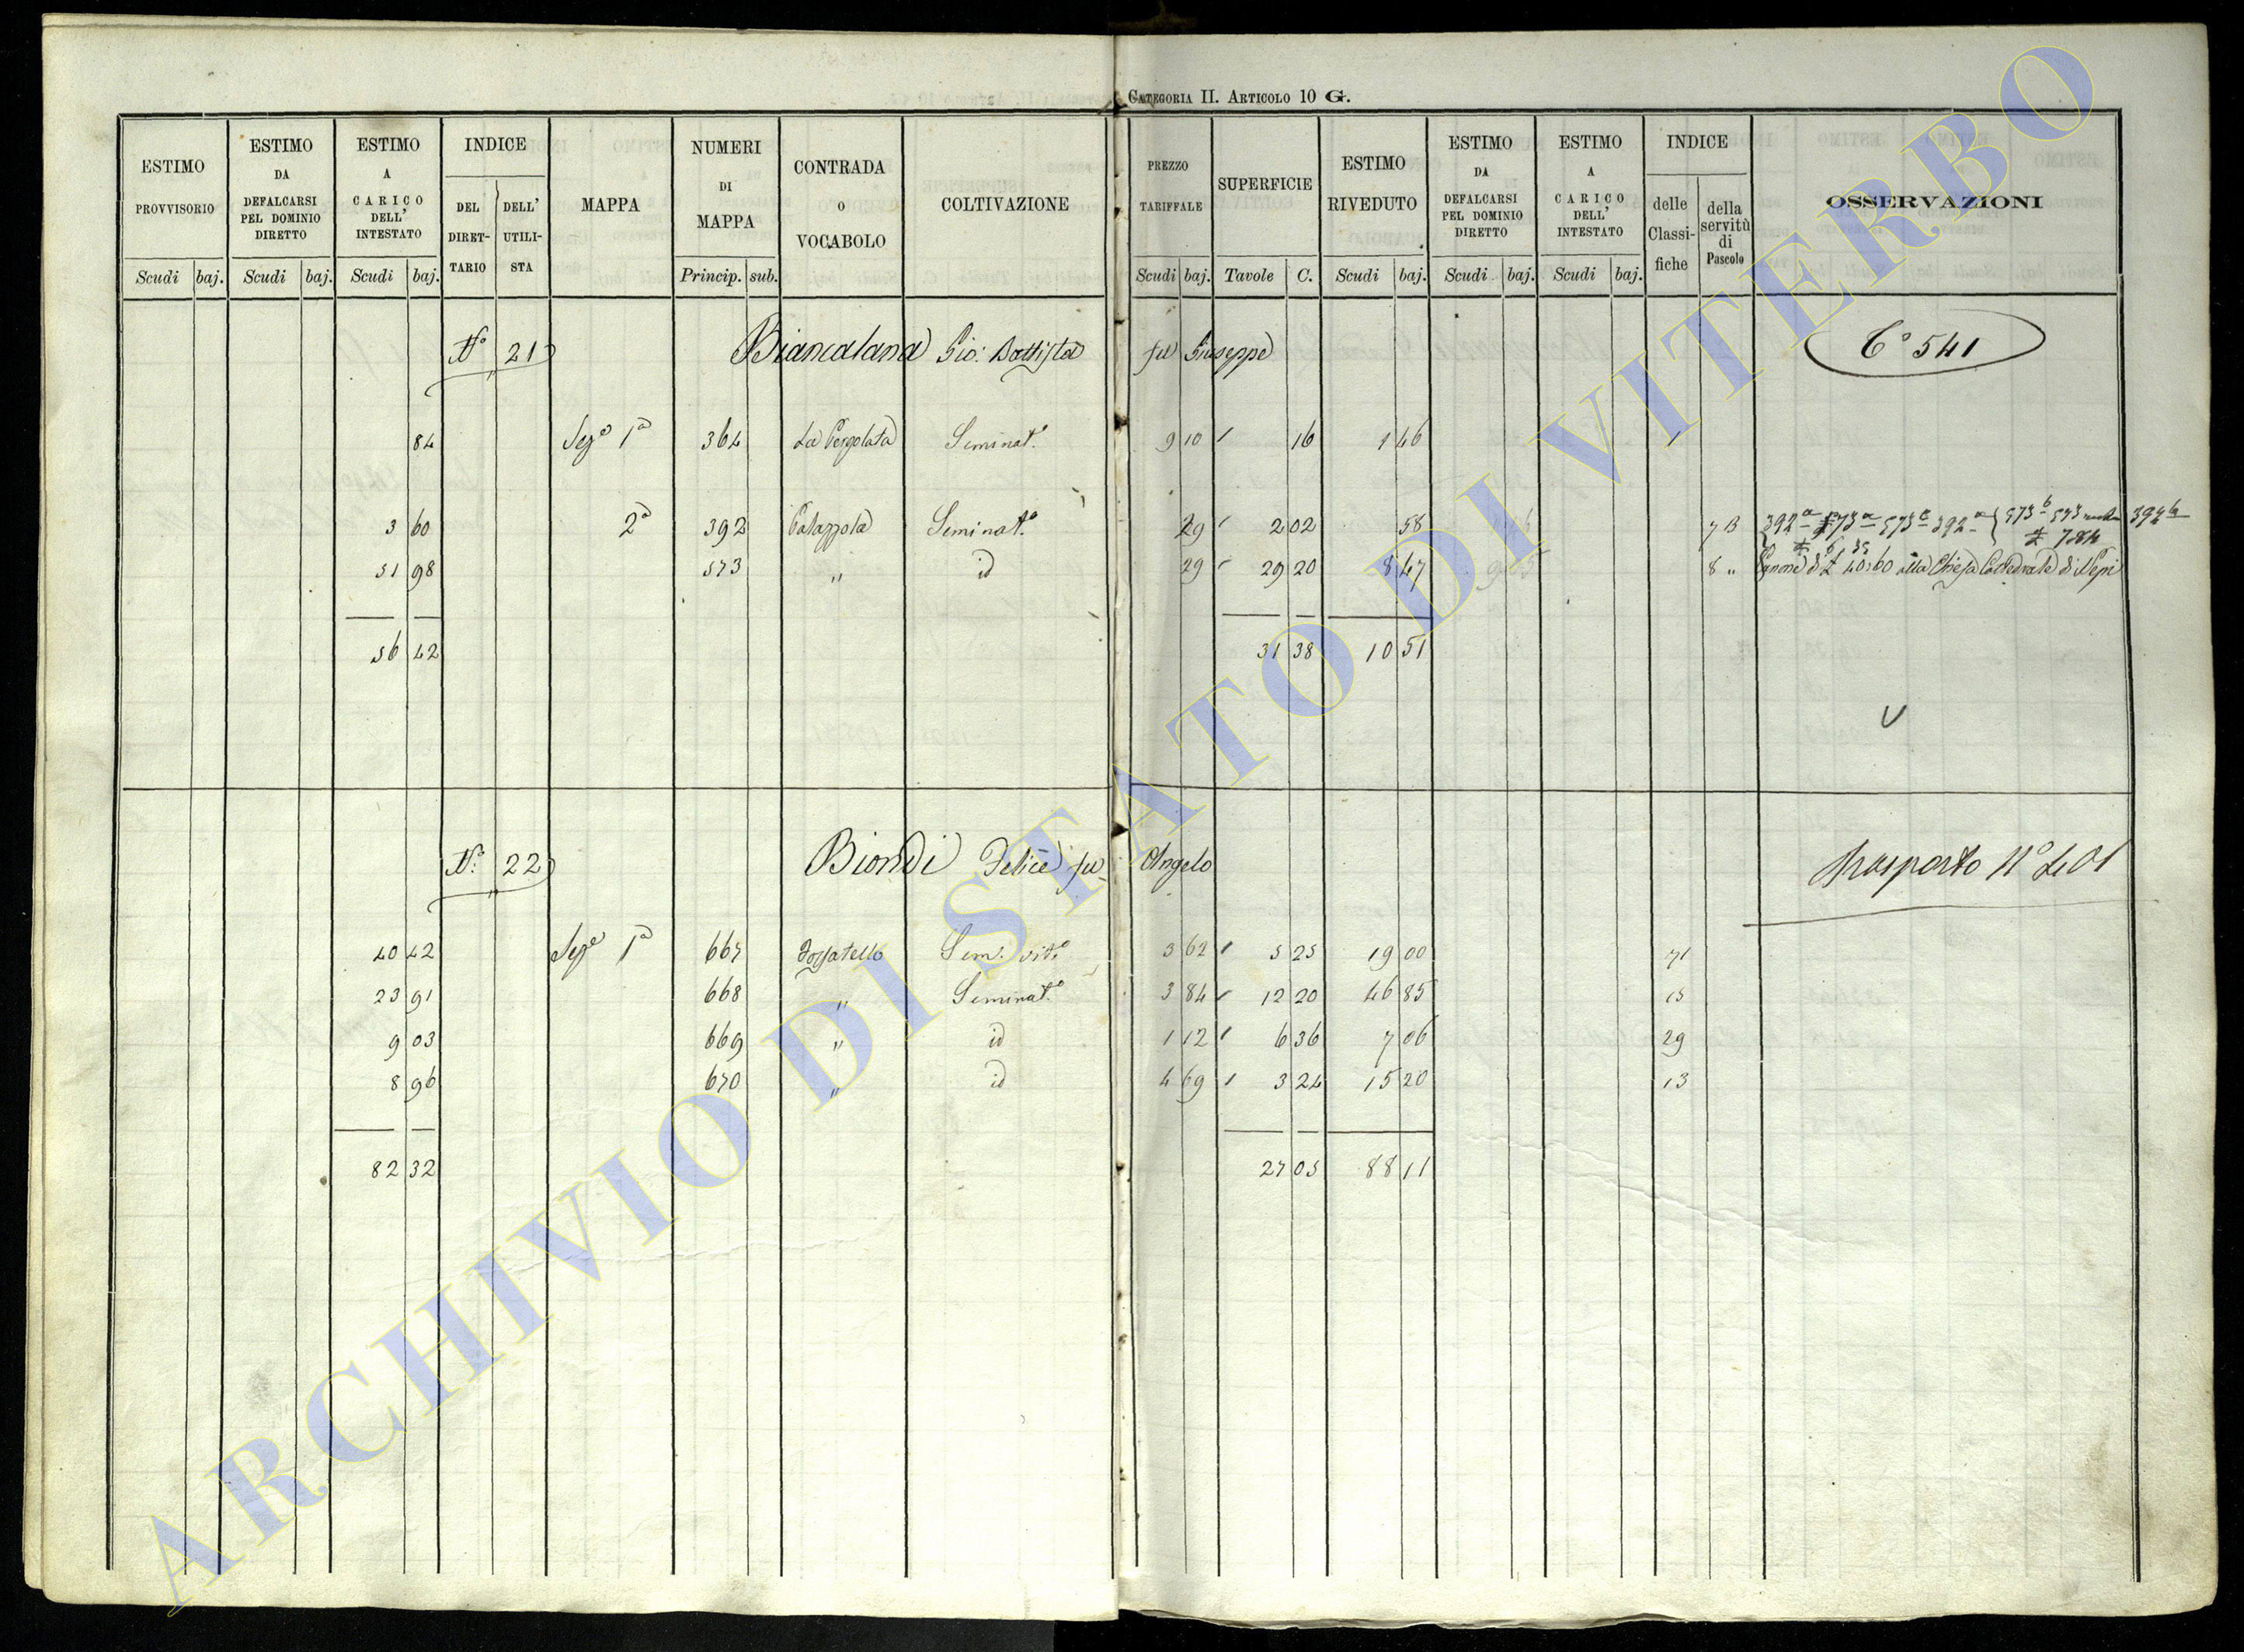 CATEGORIA II. ARTICOLO 10 G.
ESTIMO PROVVISORIO Scudi baj.
ESTIMO DA DEFALCARSI PEL DOMINIO DIRETTO Scudi baj.
ESTIMO A CARICO DELL' INTESTATO Scudi baj.
INDICE DEL DIRET-TARIO DELL' UTILI-STA
MAPPA
NUMERI DI MAPPA Princip. sub.
CONTRADA O VOCABOLO
COLTIVAZIONE
PREZZO TARIFFALE Scudi baj.
SUPERFICIE Tavole C.
ESTIMO RIVEDUTO Scudi baj.
ESTIMO DA DEFALCARSI PEL DOMINIO DIRETTO Scudi baj.
ESTIMO A CARICO DELL' INTESTATO Scudi baj.
INDICE delle Classi-fiche della servitù di Pascolo
OSSERVAZIONI
N.° 21 Biancalana Gio: Battista fu Giuseppe C° 541
84 Sez.e 1a 364 La Pergolata Seminat.o 9 10 16 1 46 1
3 60 2a 392 Seminat.o 29 2 02 58 7 B
51 98 573 " id 29 29 20 8 47 8 " Canone di 40:60 alla Chiesa Cattedrale di Nepi
56 42 31 38 10 51
N.° 22 Biondi Felice fu Angelo Trasporto N° 401
40 42 Sez.e 1a 667 Fossatello Sem. vit.o 3 62 5 25 19 00 71
23 91 668 " Seminat.o 3 84 12 20 46 85 15
9 03 669 " id 1 12 6 36 7 06 29
8 96 670 " id 4 69 3 24 15 20 13
82 32 27 05 88 11
ARCHIVIO DI STATO DI VITERBO